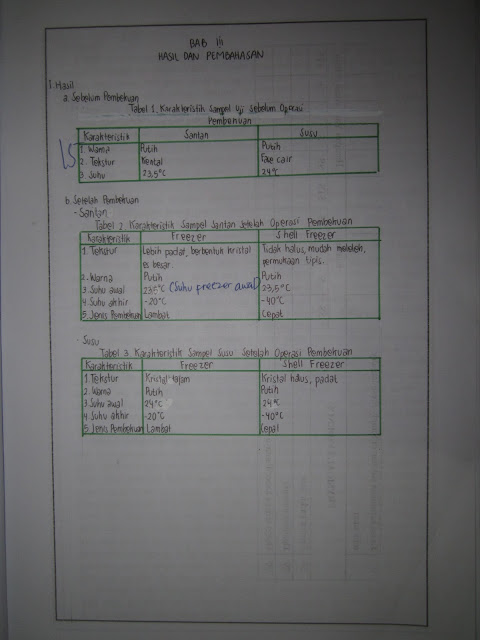 BAB III
HASIL DAN PEMBAHASAN
1. Hasil
a. Sebelum Pembekuan
Tabel 1. Karakteristik Sampel Uji Sebelum Operasi
Pembekuan
Karakteristik Santan Susu
1. Warna Putih Putih
2. Tekstur Kental Fase cair
3. Suhu 23,5°C 24°C
b. Setelah Pembekuan
- Santan
Tabel 2. Karakteristik Sampel Santan Setelah Operasi Pembekuan
Karakteristik Freezer Shell Freezer
1. Tekstur Lebih padat, berbentuk kristal Tidak halus, mudah meleleh,
es besar. permukaan tipis.
2. Warna Putih Putih
3. Suhu awal 23,5°C (Suhu freezer awal) 23,5°C
4. Suhu akhir -20°C -40°C
5. Jenis Pembekuan Lambat Cepat
- Susu
Tabel 3. Karakteristik Sampel Susu Setelah Operasi Pembekuan
Karakteristik Freezer Shell Freezer
1. Tekstur Kristal tajam Kristal halus, padat
2. Warna Putih Putih
3. Suhu awal 24°C 24°C
4. Suhu akhir -20°C -40°C
5. Jenis Pembekuan Lambat Cepat